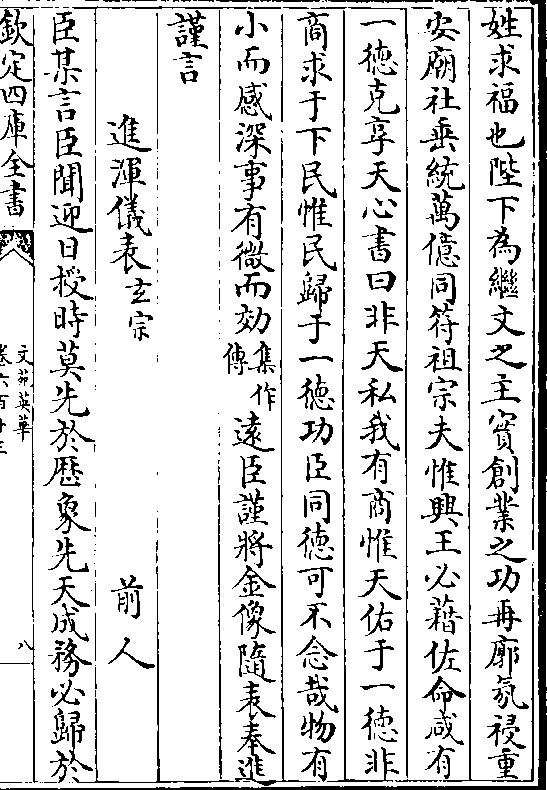 姓求福也陛下為繼文之主實創業之功再廓氛祲重
安廟社垂統萬億同符祖宗夫惟興王必藉佐命咸有
一徳克享天心書曰非天私我有商惟天佑于一徳非
商求于下民惟民歸于一徳功臣同徳可不念哉物有
小而感深事有微而効集作傳逺臣謹將金像隨表奉進
謹言
進渾儀表玄宗 前人
臣某言臣聞迎日授時莫先於厯象先天成務必歸於
欽定四庫全書
文苑英華
卷六百十三
八